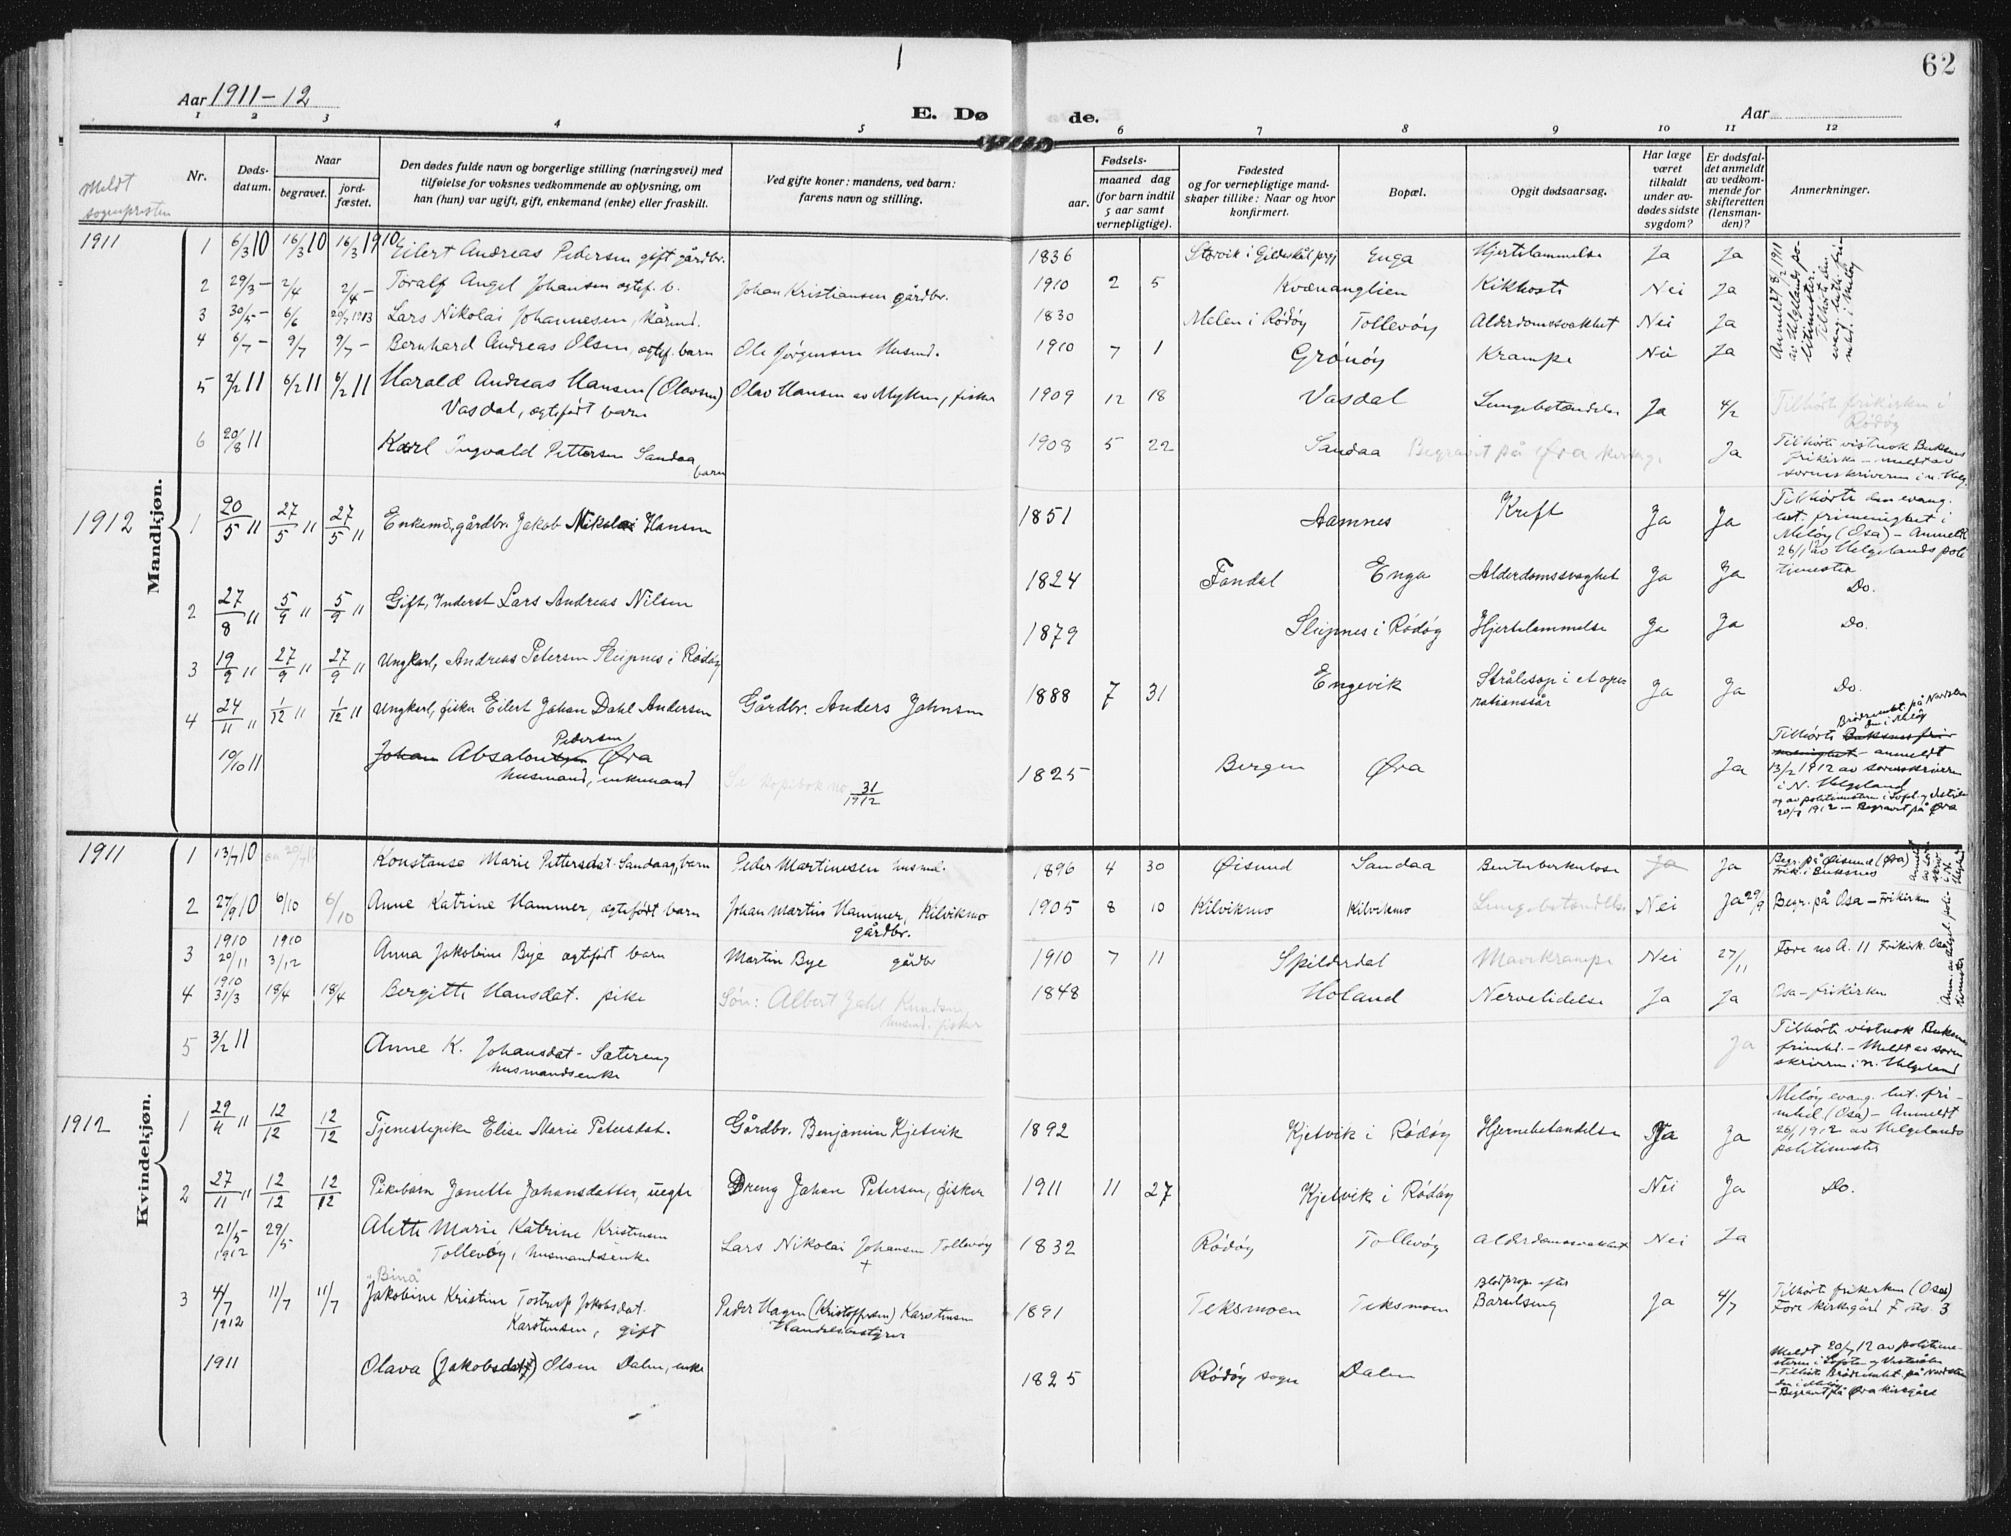 62
Aar 1911-12
E. Dø de.
Aar
1 2 3 4 5 6 7 8 9 10 11 12
Meldt sogneprsten
Nr.
Døds-datum.
Naar
begravet.
jord-fæstet.
Den dødes fulde navn og borgerlige stilling (næringsvei) med
tilføielse for voksnes vedkommende av oplysning, om
han (hun) var ugift, gift, enkemand (enke) eller fraskilt.
Ved gifte koner: mandens, ved barn:
farens navn og stilling.
Fødsels-
aar.
maaned dag
(for barn indtil
5 aar samt
vernepligtige).
Fødested
og for vernepligtige mand-
skaper tillike: Naar og hvor
konfirmert.
Bopæl.
Opgit dødsaarsag.
Har læge
været
tilkaldt
under av-
dødes sidste
sygdom?
Er dødsfal-
det anmeldt
av vedkom-
mende for
skifteretten
(lensman-
den)?
Anmerkninger.
Mandkjøn.
1911
1 6/3 10 16/3 10 16/3 1910 Eilert Andreas Pedersen gift gårdbr. 1836 Storvik i Gildeskål prgj Enga Hjertelammelse Ja Ja
2 29/3 - 2/4 2/4 - Toralf Angel Johansen egtef. b. Johan Kristiansen gårdbr. 1910 2 5 Kvænanglien Kikhoste Nei Ja
3 30/5 - 6/6 20/7 1913 Lars Nikolai Johannesen, kårmd. 1830 Melen i Rödöy Tollevöy Alderdomssvakhet Nei Ja
4 6/7 - 9/7 9/7 - Bernhard Andreas Olsen, egtef. barn Ole Jørgensen Husmd. 1910 7 1 Grönöy Krampe Nei Ja
5 2/2 11 6/2 11 6/2 11 Harald Andreas Hansen (Olavsen) Olav Hansen av Myken, fisker 1909 12 18 Vasdal Lungebetændelse Ja 4/2 Tilhörte frikirken i
Vasdal, egtefödt barn Rödöy
6 20/8 11 Karl Ingvald Pettersen Sandaa barn 1908 5 22 Sandaa Begravet på Øra kirkeg. Ja Tilhörte vistnok Buksnes
frikirke - meldt av
sorenskriveren i n. Helg.
1912
1 20/5 11 27/5 11 27/5 11 Enkemd, gårdbr. Jakob Nikolai Hansen 1851 Aamnes Kreft Ja Ja Tilhörte den evang.
lut. frimenighet i
Melöy (Osa) - Anmeldt
26/1 12 av Helgelands poli
timester
2 27/8 11 5/9 11 5/9 11 Gift, Inderst Lars Andreas Nilsen 1824 Fondal Enga Alderdomssvaghet Ja Ja Do.
3 19/9 11 27/9 11 27/9 11 Ungkarl, Andreas Petersen Sleipnes i Rödöy 1879 Sleipnes i Rödöy Hjertelammelse Ja Ja Do.
4 24/11 11 1/12 11 1/12 11 Ungkarl, fisker Eilert Johan Dahl Andersen Gårdbr. Anders Johnsen 1888 7 31 Engevik Strålesop i et ope-
rationssår Ja Ja Do.
10/10 11 Johan Absalon Pedersen Øra
husmand, enkemand Se kopibok no 31/1912 1825 Bergen Øra Ja Tilhörte Buksnes fri-
menighet - anmeldt
13/2 1912 av sorenskriveren
i N. Helgeland
og av politimesteren i Lofot og Vesterålen
20/7 1912 - Begravet på Øra
Kvindekjøn.
1911
1 13/7 10 ca 20/7 10 Konstanse Marie Pettersdat. Sandaag, barn Peder Martinesen husmd. 1896 4 30 Øisund Sandaa Bentuberkulose Ja Ja Begr. på Øisund (Øra)
Frik. i Buksnes
2 27/9 10 6/10 6/10 Anne Katrine Hammer, egtefödt barn Johan Martin Hammer, Kilvikmo
gårdbr. 1905 8 10 Kilvikmo Kilvikmo Lungebetændelse Nei Ja 29/9 Begr. på Osa - Frikirken
3 1910 20/11 1910 3/12 Anna Jakobine Bye egtefödt barn Martin Bye gårdbr 1910 7 11 Spilderdal Mavekrampe Nei 27/11 Fore no A. 11 Frikirk. Osa
4 1910 31/3 18/4 18/4 Bergitte Hansdat. pike Søn: Albert Dahl Knudsen,
husmd. fisker 1848 Holand Nervelidelse Ja Ja Osa-frikirken
5 3/2 11 Anne K. Johansdat. Sætereng
husmandsenke Ja Tilhörte vistnok Buksnes
frimhd. - Meldt av soren
skriveren i n. Helgeland
1912
1 29/4 11 12/12 12/12 Tjenestepike Elise Marie Petersdat. Gårdbr. Benjamin Kjetvik 1892 Kjetvik i Rödöy Hjernebetændelse Ja Ja Melöy evang. lut. fri-
mhd (Osa) - Anmeldt
26/1 1912 av Helgelands
politimester
2 27/11 11 12/12 12/12 Pikebarn Janette Johansdatter, uegte Dreng Johan Petersen, fisker 1911 11 27 Kjetvik i Rödöy Nei Ja Do.
21/5 1912 29/5 Alette Marie Katrine Kristensen
Tollevöy, husmandsenke Lars Nikolai Johansen Tollevöy + 1832 Rödöy Tollevöy Alderdomssvakhet Nei Ja
3 4/7 1912 11/7 11/7 "Bina"
Jakobine Kristine Tostrup Jakobsdat.
Karstensen, gift Peder Hagen (Kristoffersen) Karstensen
Handelsbestyrer 1891 Teksmoen Teksmoen Blodprop efter
Barselseng Ja 4/7 Tilhörte frikirken (Osa)
Fore kirkegård F. no. 3
1911 Olava (Jakobsdat) Olsen Dalen, enke 1825 Rödöy sogn Dalen Meldt 20/7 12 av politime-
steren i Lofoten og Vesterålen
- Tilhörte Brödremht. på Nordsten
den i Melöy
- Begravet på Øra kirkegård